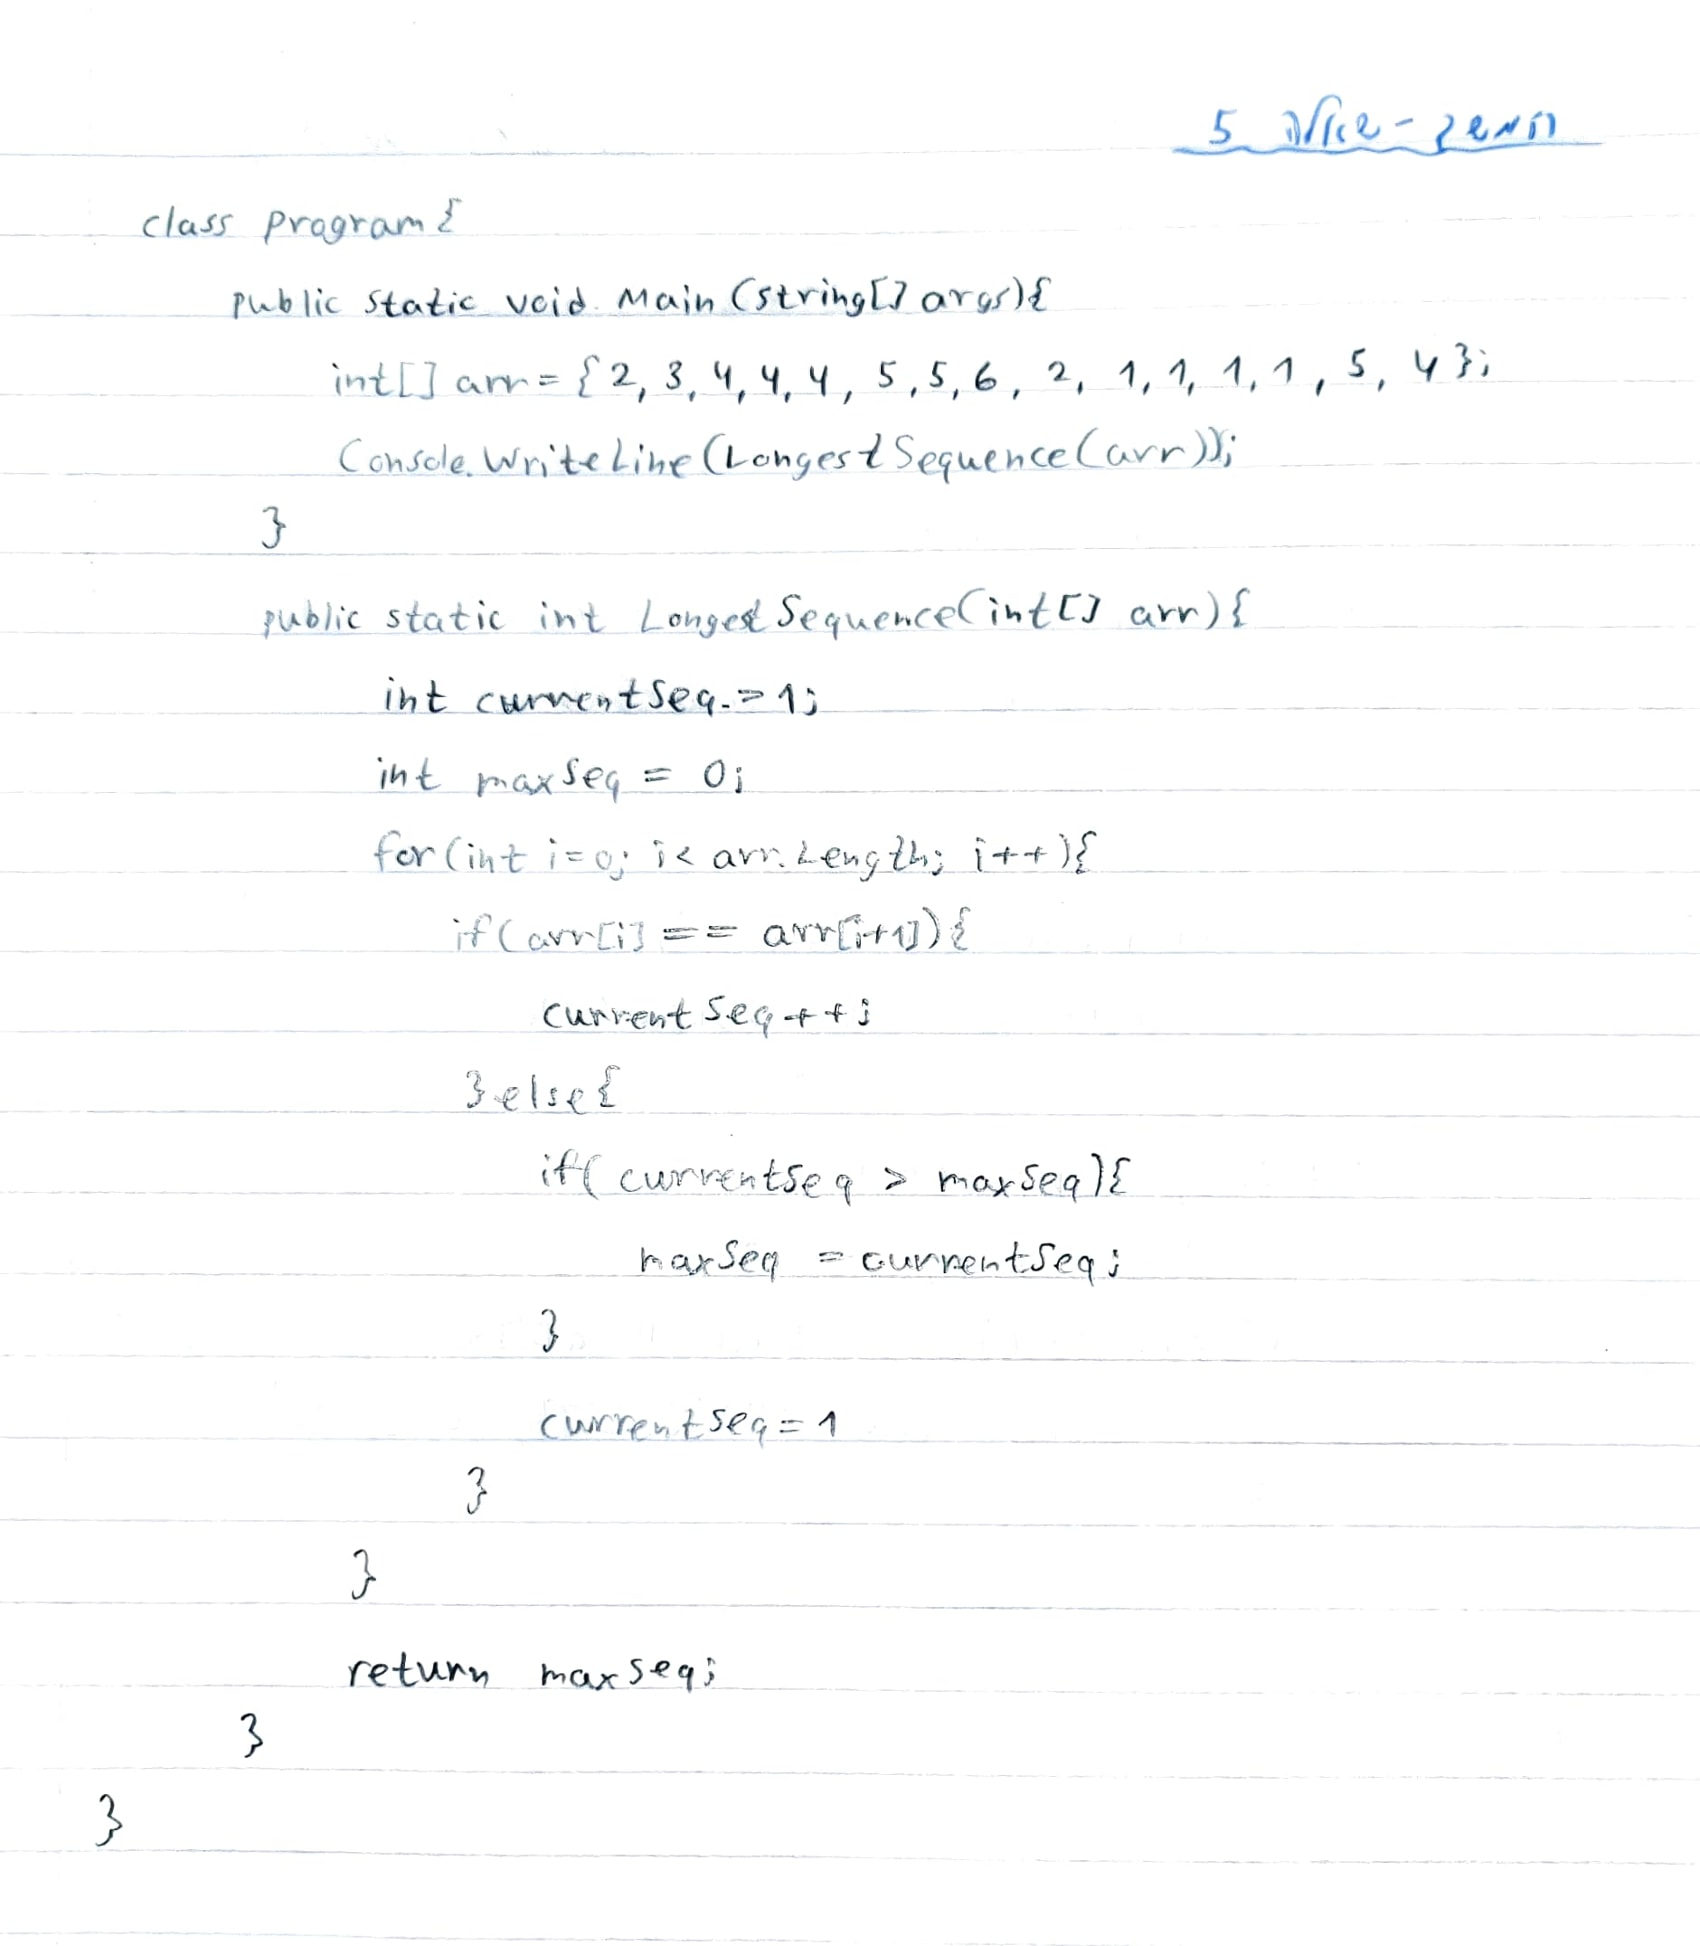 5 תרגיל - שאלה
class program{
public static void Main (string[] args){
int[] arr = {2, 3, 4, 4, 4, 5, 5, 6, 2, 1, 1, 1, 1, 5, 4};
Console.WriteLine(LongestSequence(arr));
}
public static int LongestSequence(int[] arr){
int currentSeq = 1;
int maxSeq = 0;
for(int i=0; i< arr.Length; i++){
if(arr[i] == arr[i+1]){
currentSeq++;
}else{
if( currentSeq > maxSeq){
maxSeq = currentSeq;
}
currentSeq = 1
}
}
return maxSeq;
}
}